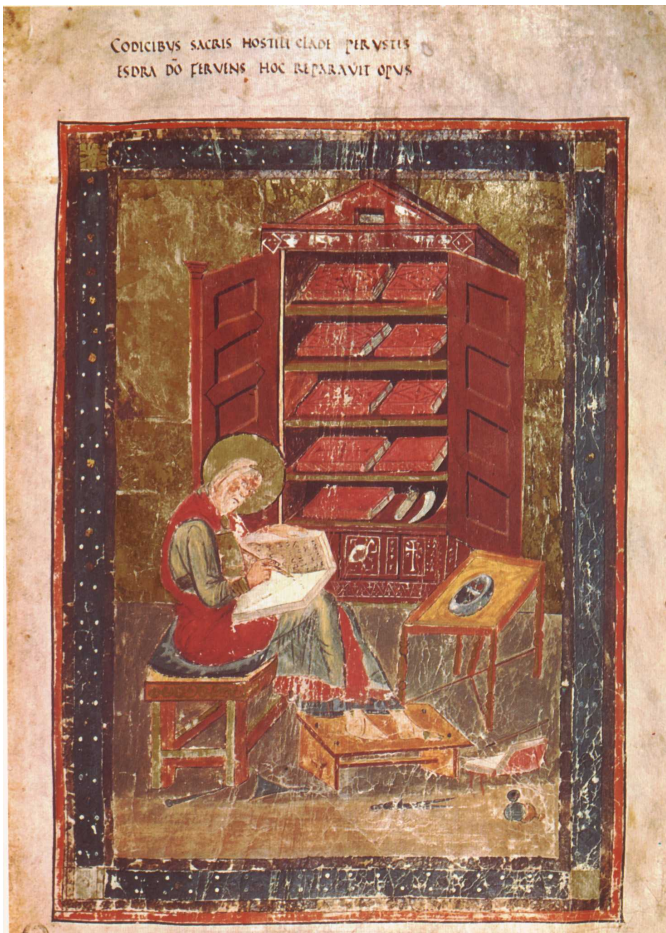 CODICIBUS SACRIS HOSTILI CLADE PERUSTIS
ESDRA D̄Ō FERVENS HOC REPARAVIT OPUS